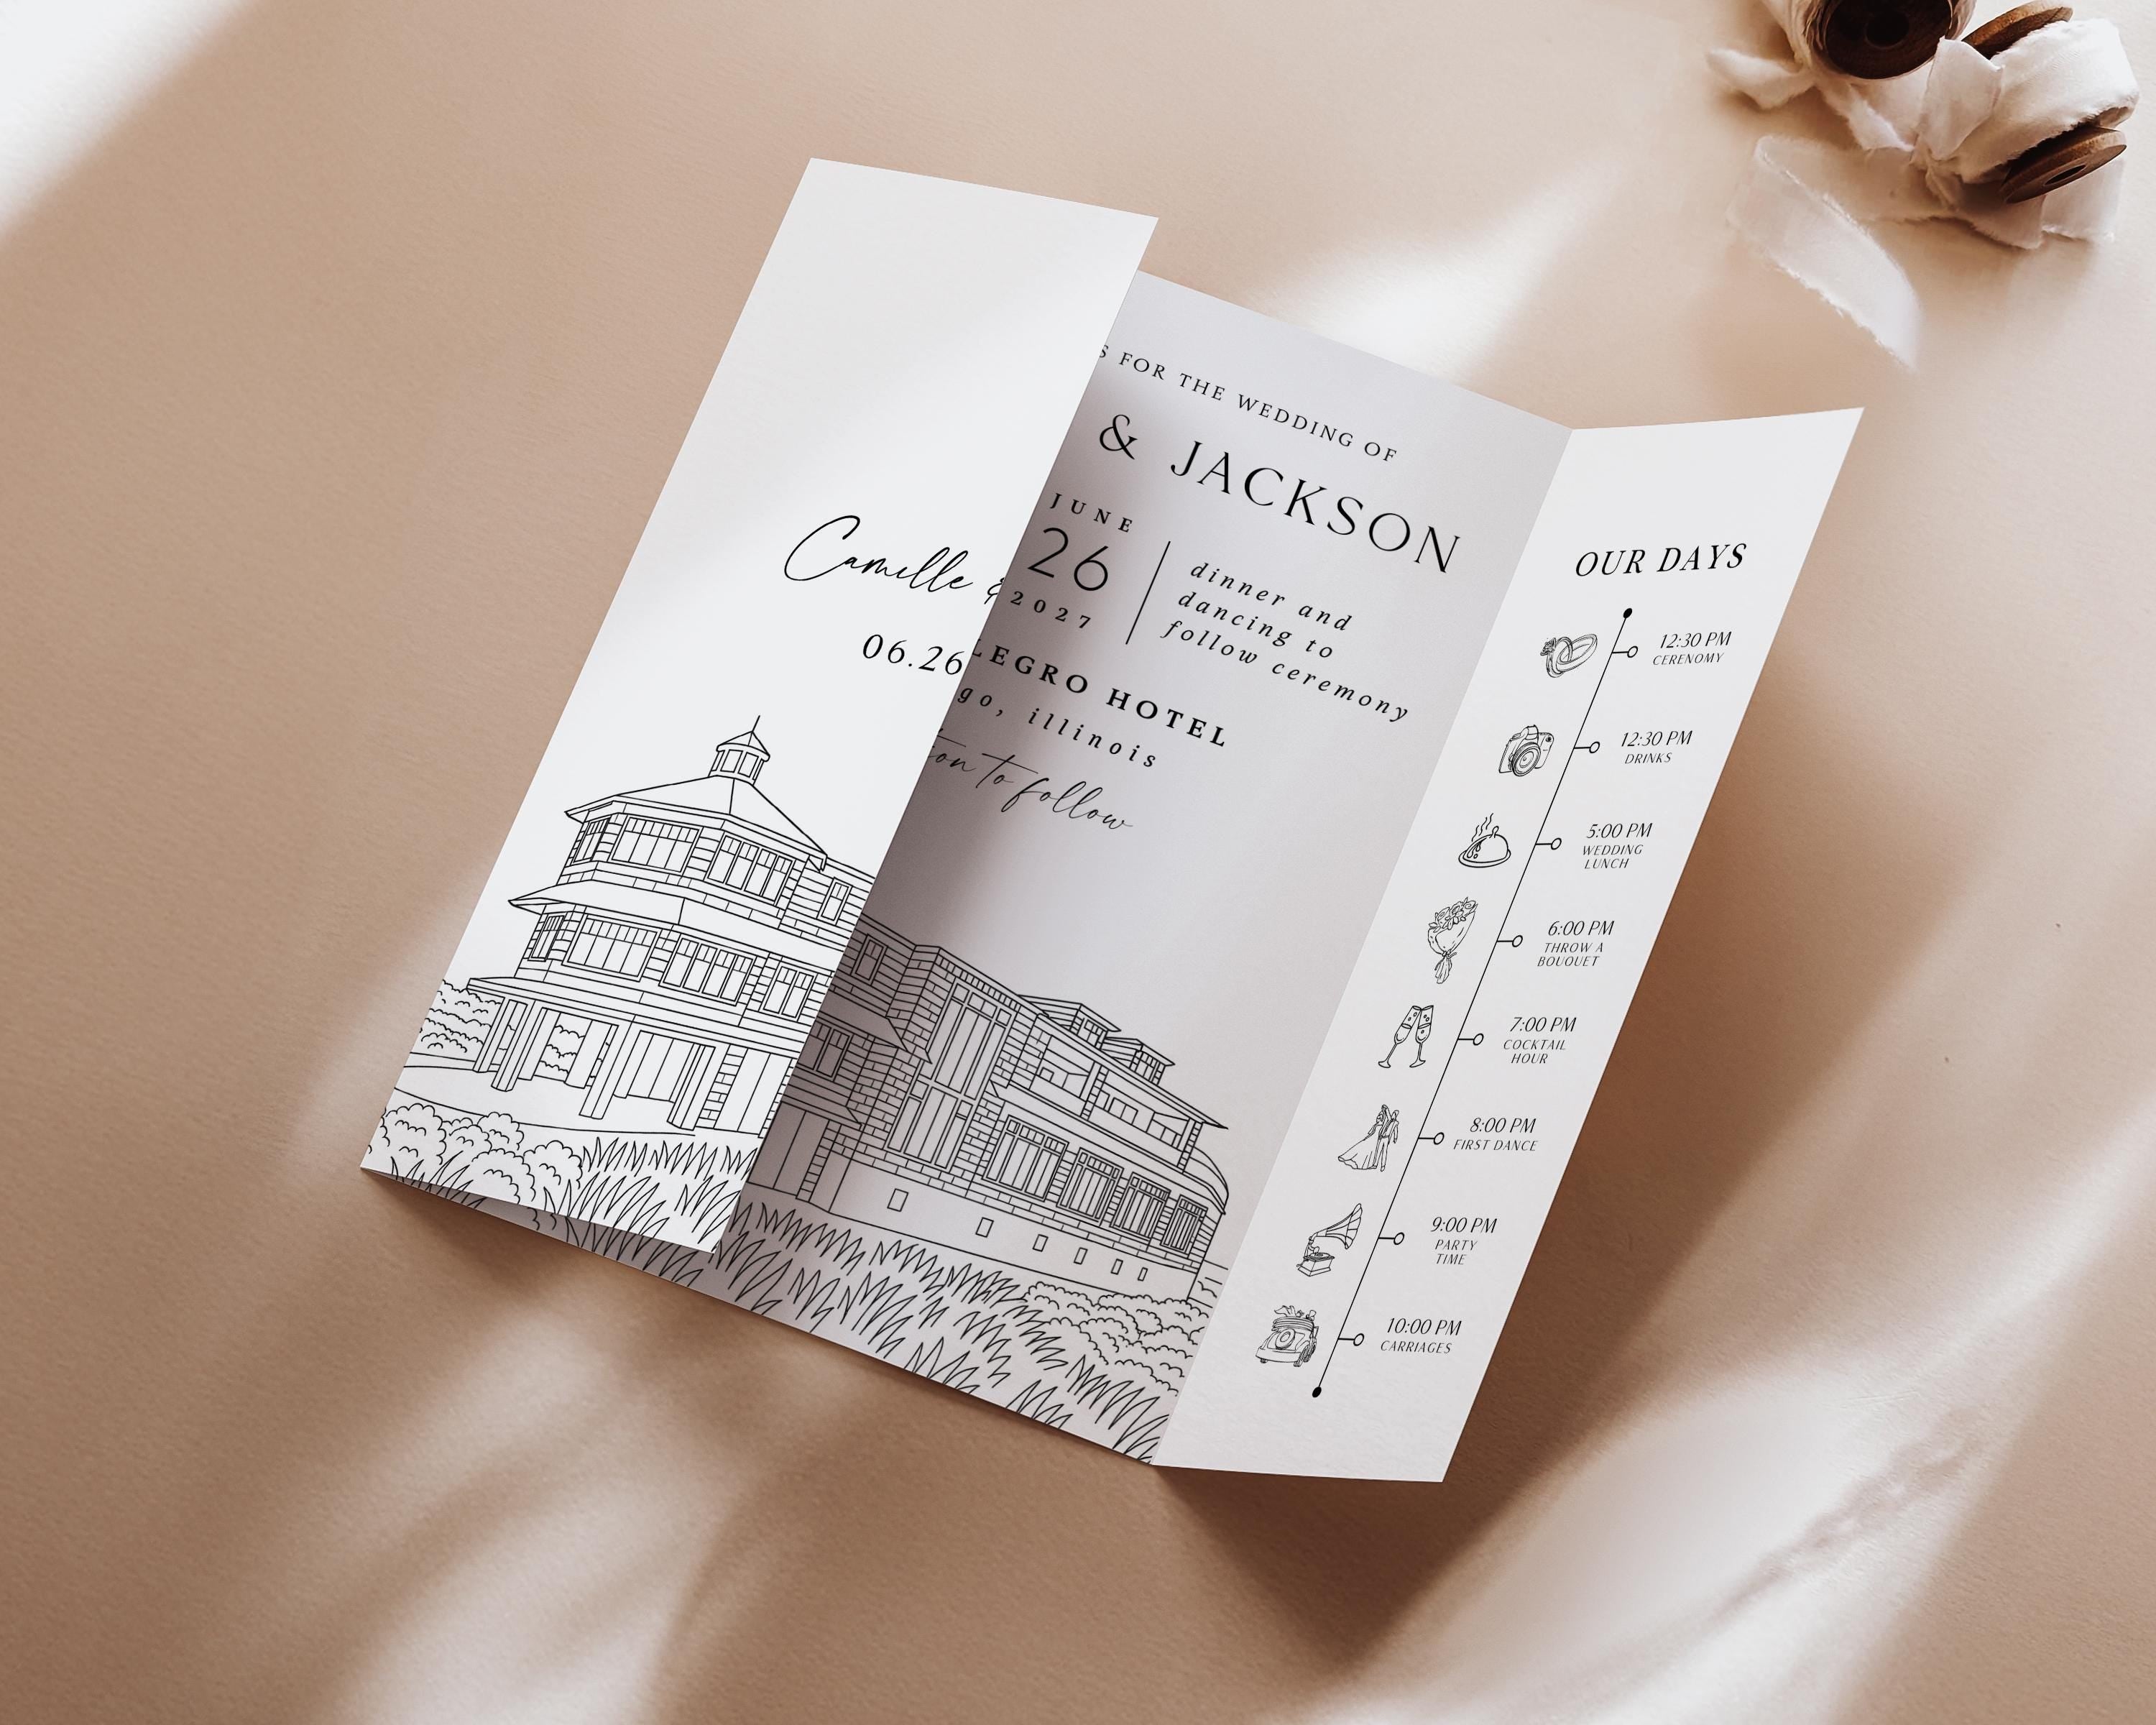 Camille &
06.26
FOR THE WEDDING OF
& JACKSON
JUNE
26
2027
dinner and
dancing to
follow ceremony
HOTEL
illinois
to follow
OUR DAYS
12:30 PM
CERENOMY
12:30 PM
DRINKS
5:00 PM
WEDDING
LUNCH
6:00 PM
THROW A
BOUQUET
7:00 PM
COCKTAIL
HOUR
8:00 PM
FIRST DANCE
9:00 PM
PARTY
TIME
10:00 PM
CARRIAGES